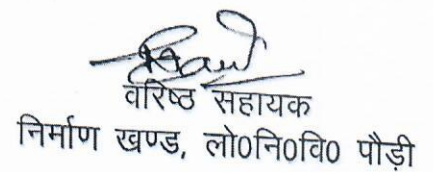 वरिष्ठ सहायक
निर्माण खण्ड, लो0नि0वि0 पौड़ी